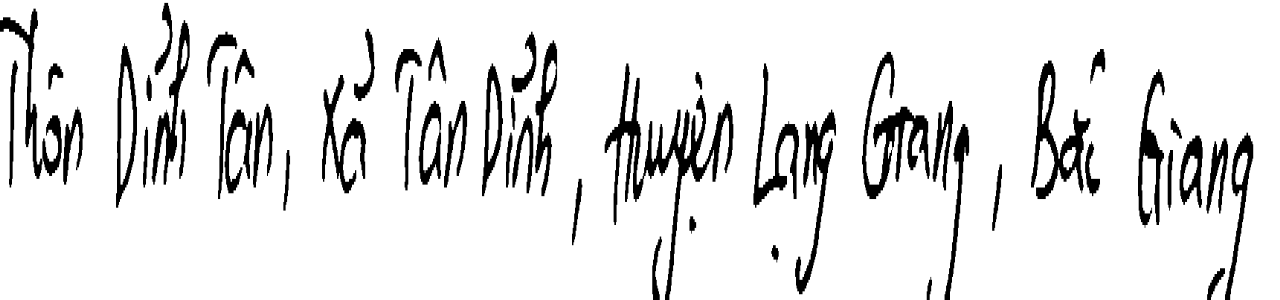 Thôn Dĩnh Tân, Xã Tân Dĩnh, Huyện Lạng Giang, Bắc Giang